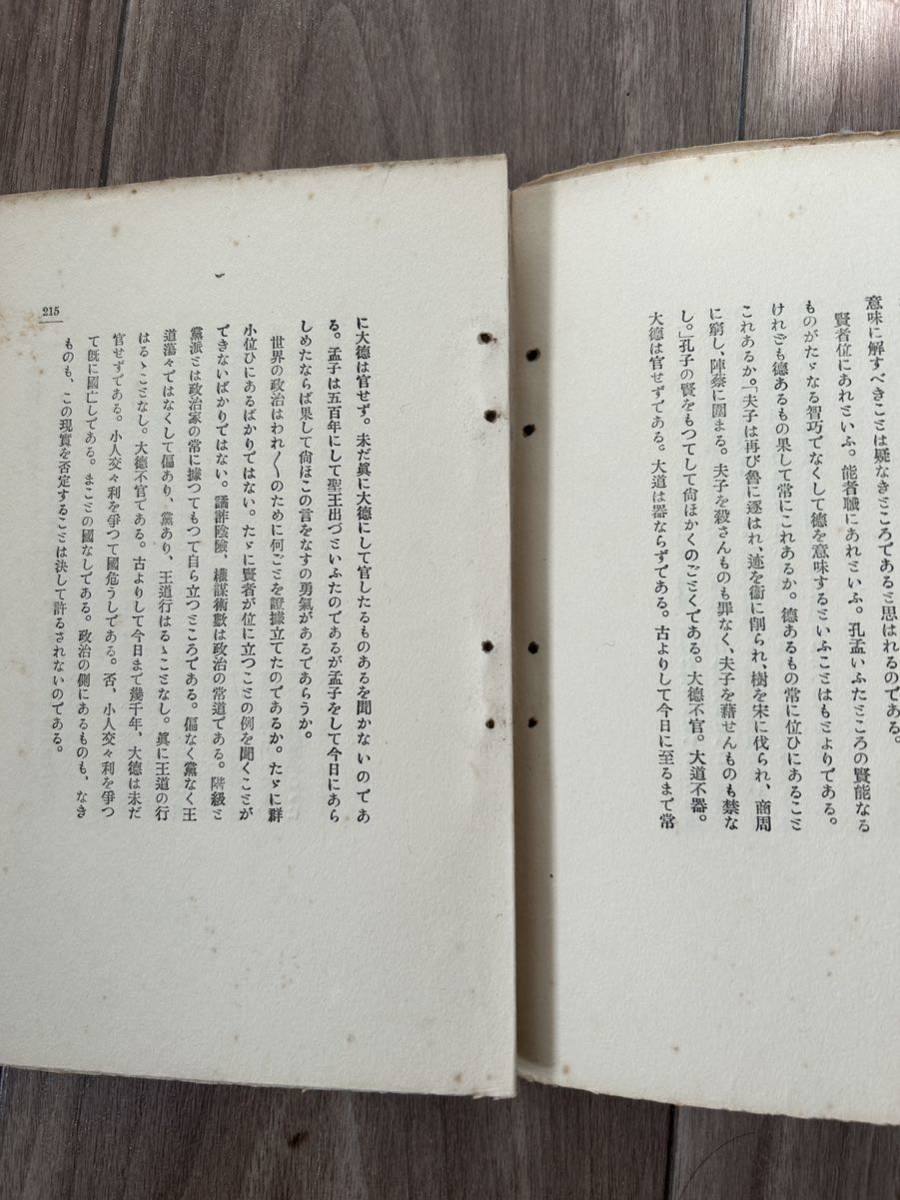 意味に解すべきことは疑なきところであると思はれるのである。
賢者位にあれといふ。能者職にあれといふ。孔孟いふたところの賢能なる
ものがたゞなる智巧でなくして德を意味するといふことはもとよりである。
けれども德あるもの果して常にこれあるか。德あるもの常に位ひにあること
これあるか。「夫子は再び魯に逐はれ、迹を衞に削られ、樹を宋に伐られ、商周
に窮し、陣蔡に圍まる。夫子を殺さんものも罪なく、夫子を藉せんものも禁な
し。」孔子の賢をもつてして尙ほかくのごとくである。大德不官。大道不器。
大德は官せずである。大道は器ならずである。古よりして今日に至るまで常
に大德は官せず。未だ眞に大德にして官したるものあるを聞かないのであ
る。孟子は五百年にして聖王出づといふたのであるが孟子をして今日にあら
しめたならば果して尙ほこの言をなすの勇氣があるであらうか。
世界の政治はわれ〳〵のために何ごとを證據立てたのであるか。たゞに群
小位ひにあるばかりではない。たゞに賢者が位に立つことの例を聞くことが
できないばかりではない。譎詐陰險、權謀術數は政治の常道である。階級と
黨派とは政治家の常に據つてもつて自ら立つところである。偏なく黨なく王
道蕩々ではなくして偏あり、黨あり、王道行はるゝことなし。眞に王道の行
はるゝことなし。大德不官である。古よりして今日まで幾千年、大德は未だ
官せずである。小人交々利を爭つて國危うしである。否、小人交々利を爭つ
て旣に國亡しである。まことの國なしである。政治の側にあるものも、なき
ものも、この現實を否定することは決して許るされないのである。
215